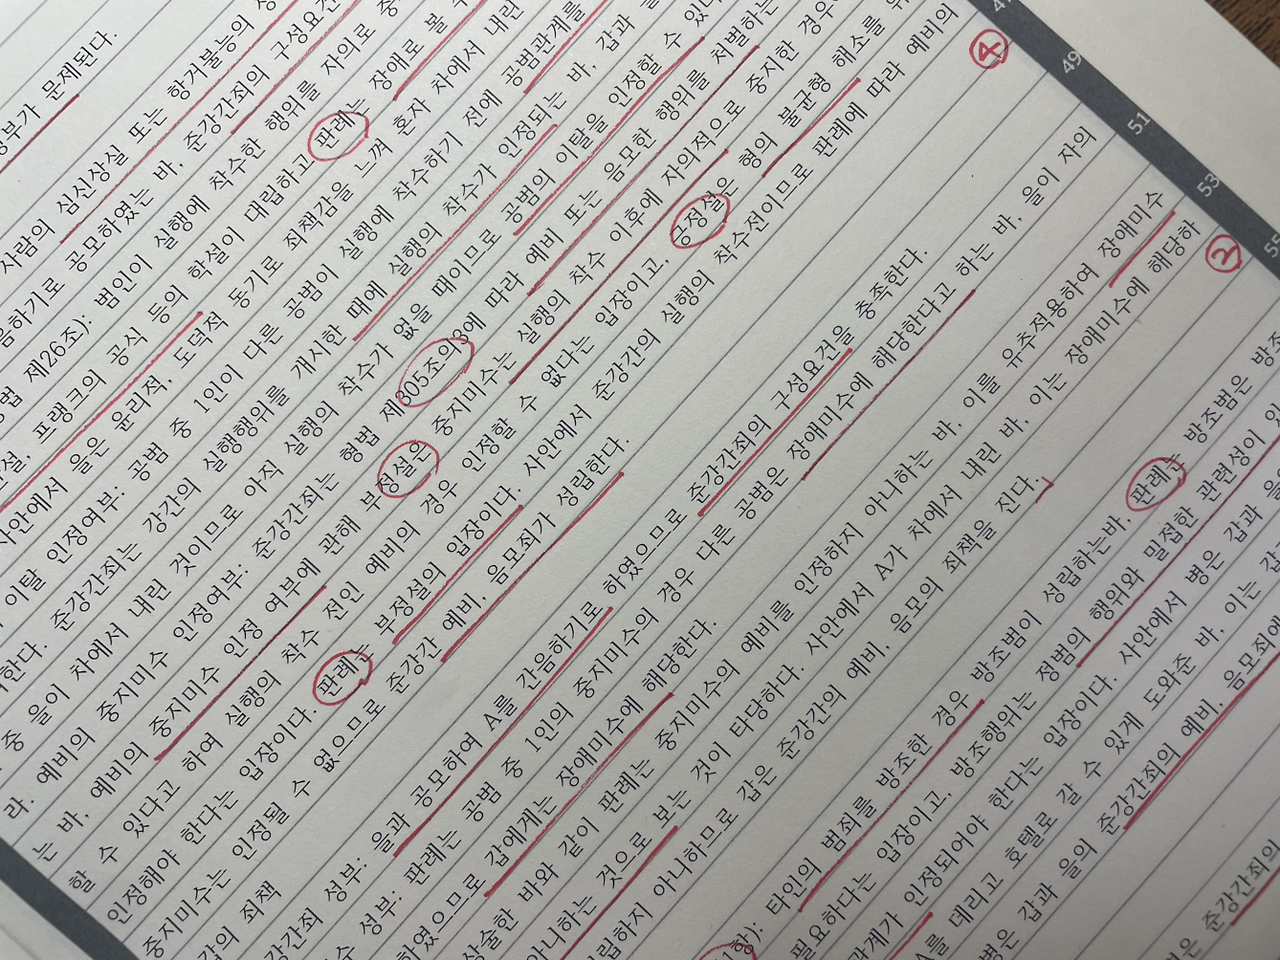 성부가 문제된다.
사람의 심신상실 또는 항거불능의
음하기로 공모하였는 바, 준강간죄의 구성요건
제26조): 범인이 실행에 착수한 행위를 자의로
프랭크의 공식 등의 학설이 대립하고 판례는 장애로 볼 수
사안에서 을은 윤리적, 도덕적 동기로 죄책감을 느껴 혼자 차에서 내린
이탈 인정여부: 공범 중 1인이 다른 공범이 실행에 착수하기 전에 공범관계를
한다. 준강간죄는 강간의 실행행위를 개시한 때에 실행의 착수가 인정되는 바, 갑과
중 을이 차에서 내린 것이므로 아직 실행의 착수가 없을 때이므로 공범의 이탈을 인정할 수 있다
라. 예비의 중지미수 인정여부: 준강간죄는 형법 제305조의3에 따라 예비 또는 음모한 행위를 처벌하는
는 바, 예비의 중지미수 인정 여부에 관해 부정설은 중지미수는 실행의 착수 이후에 자의적으로 중지한 경우
할 수 있다고 하여 실행의 착수 전인 예비의 경우 인정할 수 없다는 입장이고, 긍정설은 형의 불균형 해소를
인정해야 한다는 입장이다. 판례는 부정설의 입장이다. 사안에서 준강간의 실행의 착수전이므로 판례에 따라 예비의
중지미수는 인정될 수 없으므로 준강간 예비, 음모죄가 성립한다.
갑의 죄책
④
47
강간죄 성부: 을과 공모하여 A를 간음하기로 하였으므로 준강간죄의 구성요건을 충족한다.
49
수 성부: 판례는 공범 중 1인의 중지미수의 경우 다른 공범은 장애미수에 해당한다고 하는 바, 을이 자의
51
하였으므로 갑에게는 장애미수에 해당한다.
상술한 바와 같이 판례는 중지미수의 예비를 인정하지 아니하는 바, 이를 유추적용하여 장애미수
53
아니하는 것으로 보는 것이 타당하다. 사안에서 A가 차에서 내린 바, 이는 장애미수에 해당하
②
55
립하지 아니하므로 갑은 준강간의 예비, 음모의 죄책을 진다.
항): 타인의 범죄를 방조한 경우 방조범이 성립하는바, 판례는 방조범은
필요하다는 입장이고, 방조행위는 정범의 행위와 밀접한 관련성이
관계가 인정되어야 한다는 입장이다. 사안에서 병은 갑과
A를 데리고 호텔로 갈 수 있게 도와준 바, 이는
병은 갑과 을의 준강간죄의 예비, 음모죄에
은 준강간죄의